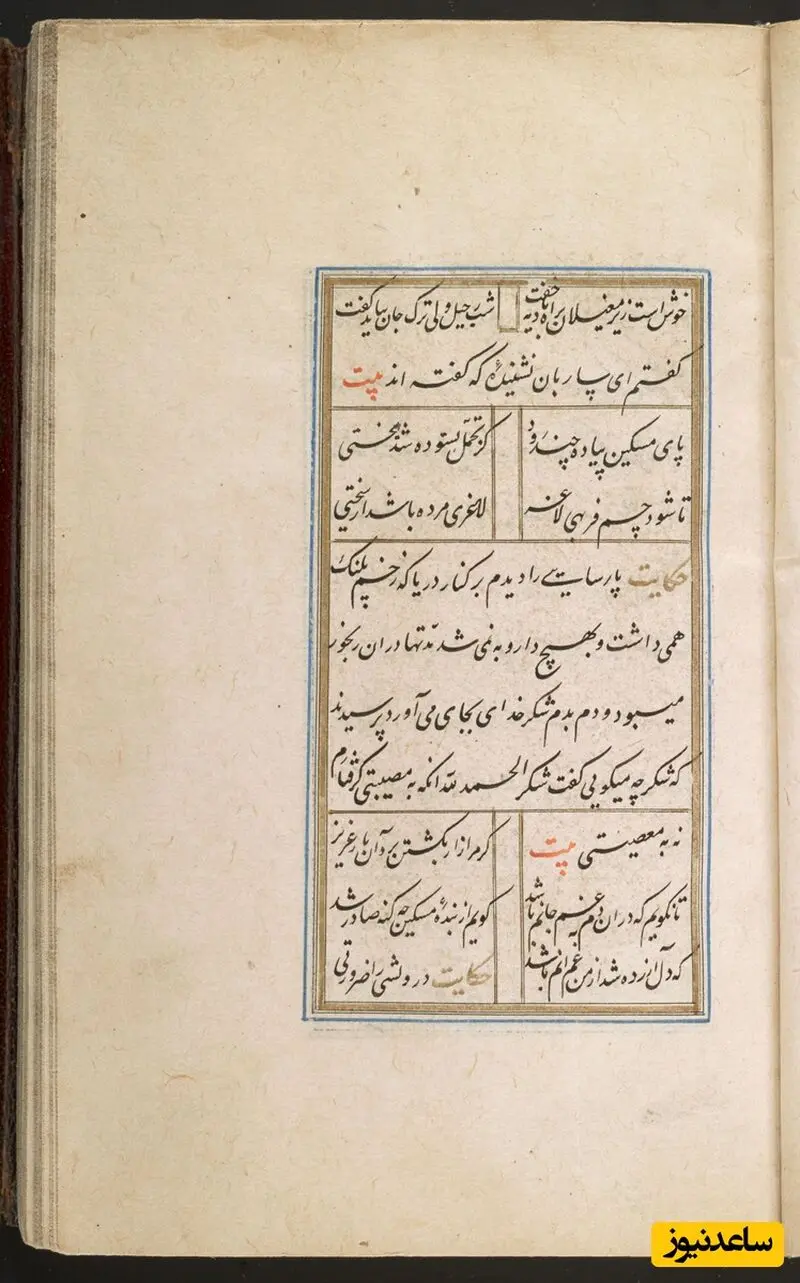 خوش است زیر مغیلان براه بادیه خفت شب رحیل ولی ترک جان بباید گفت
گفتم ای ساربان نشنیدهٔ که گفته اند بیت
پای مسکین پیاده چند رود کز تحمل ستوده شد بختی
تا شود جسم فربهی لاغر لاغری مرده باشد از سختی
حکایت پارسایی را دیدم بر کنار دریا که زخم پلنک
همی داشت و بهیچ دارو به نمی شد مدتها در ان رنجور
میبود و دم بدم شکر خدای بجای می آورد پرسیدند
که شکر چه میکویی گفت شکر الحمد لله انکه به مصیبتی گرفتارم
نه به معصیتی بیت کرم را زار بکشتن برد آن یار عزیز
تا نکویم که در ان دم غم جانم باشد کویم از بندهٔ مسکین چه کنه صادر شد
که دل آزرده شد از من غم انم باشد حکایت درویشی را ضرورتی
ساعدنیوز